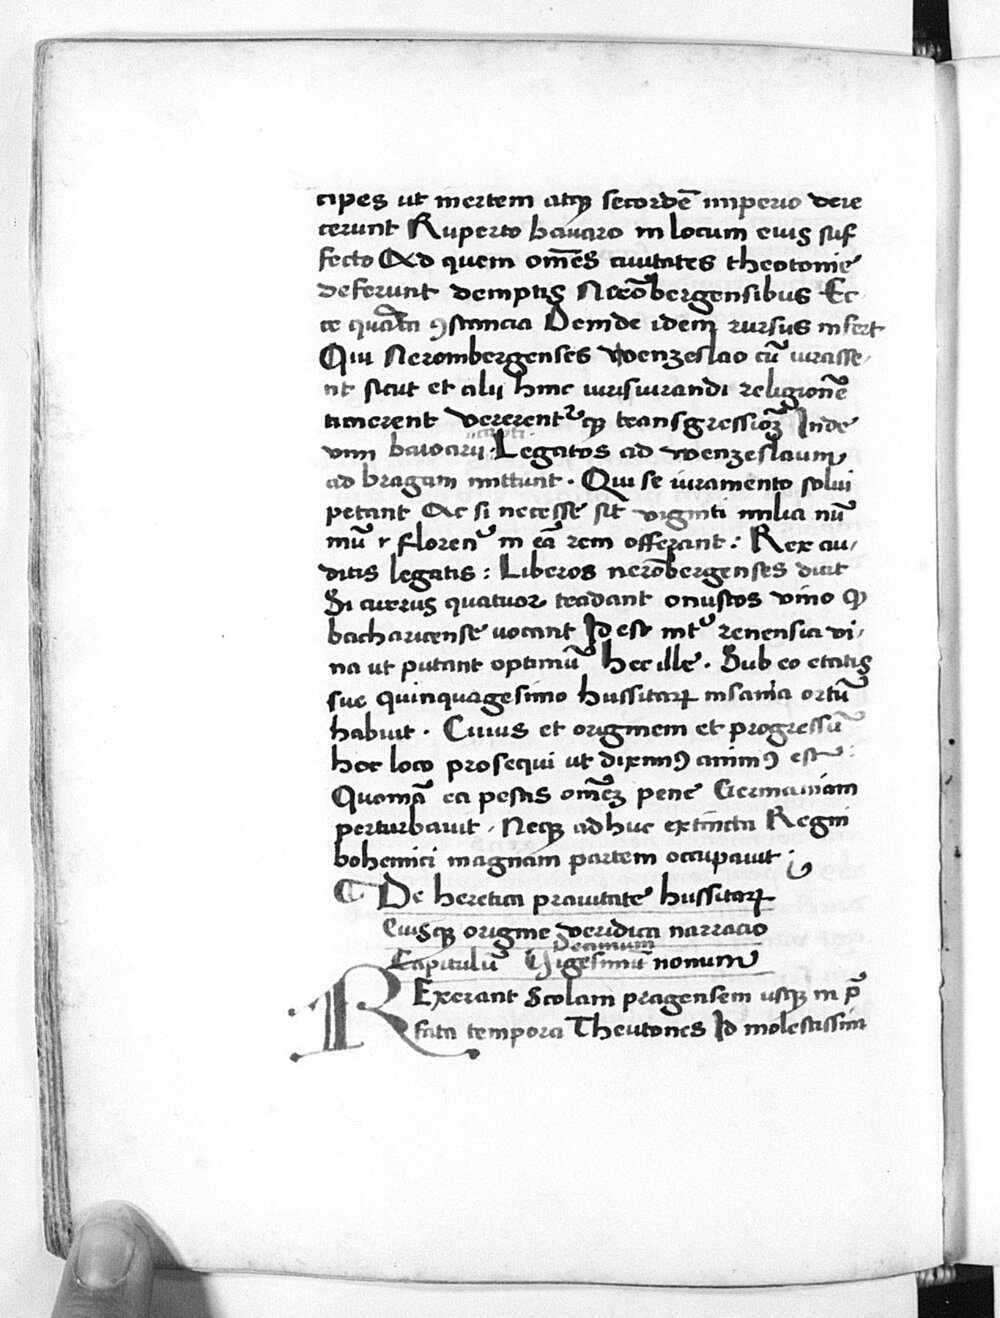 cipes ut inertem atqꝫ secordē imperio deie
cerunt Ruperto bavaro in locum eius suf
fecto Ad quem om̄es ciuitates theotonie
deferunt demptis Nerōbergensibus Ec
ce ꝯstancia Deinde idem rursus inseit
Qui Nerombergenses Wenzeslao cū iurasse/
nt sicut et alij hinc iurisiurandi religionē
timerent vererent᷑qꝫ transgressioēꝫ Inde
vnn bavoarij Legatos ad wenzeslaum
ad bragam mittunt . Qui se iuramento solui
petant Ac si necesse sit viginti milia nū
mū r florenꝰ in eā rem offerant : Rex au/
ditis legatis : Liberos nerōbergenses dicit
Si currus quatuor tradant onustos vino qꝫ
bacharicense uocant Id est renensia vi/
na ut putant optimū hec ille . Sub eo etatis
sue quinquagesimo hussitaꝝ insania ortū
habuit . Cuius et originem et progressū
hoc loco prosequi ut diximꝯ animꝯ est
Quoniā ea pestis om̄eꝫ pene Germaniam
perturbauit . Neqꝫ adhuc extincta Regni
bohemici magnam partem occupauit .
¶ De heretica prauitate hussitaꝝ
Eiusqꝫ origine veridica narracio
Decimum
Capitulū Vigesimū nonum
RExerant Scolam pragensem usqꝫ in p̄
fata tempora Theutones Id molestissim